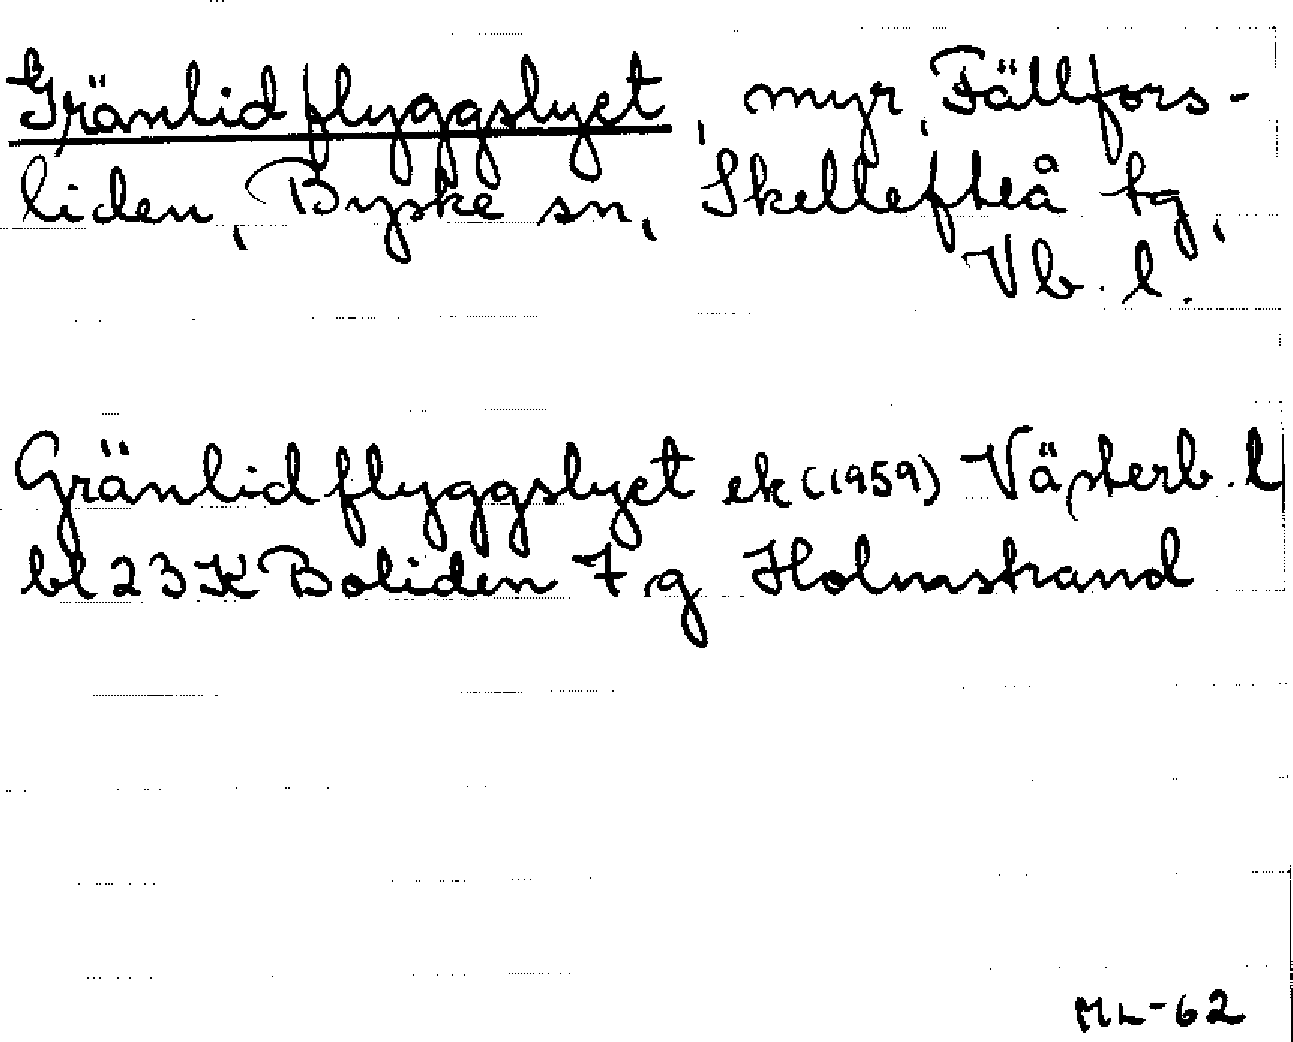 Gränlidflyggslyet, myr, Fällfors-
liden, Byske sn, Skellefteå tg,
Vb. l.
Gränlidflyggslyet ek (1959) Västerb. l
bl 23K Boliden 7 g Holmstrand
ML-62